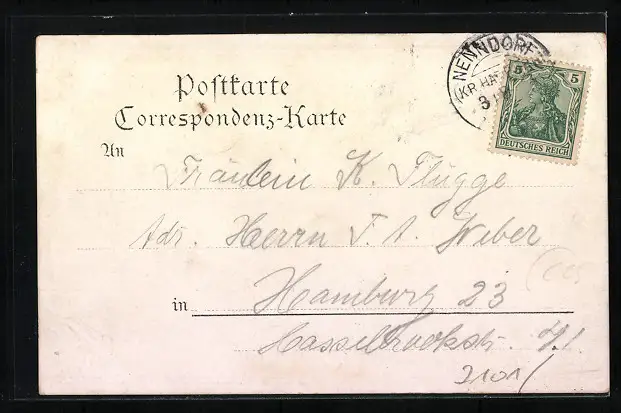 Postkarte
Correspondenz-Karte
NENNDORF
(KR. HA
5 5
DEUTSCHES REICH
An
Fräulein K. Flügge
Adr. Herrn F. A. Weber
in Hamburg 23
Hasselbrookstr.
2101/